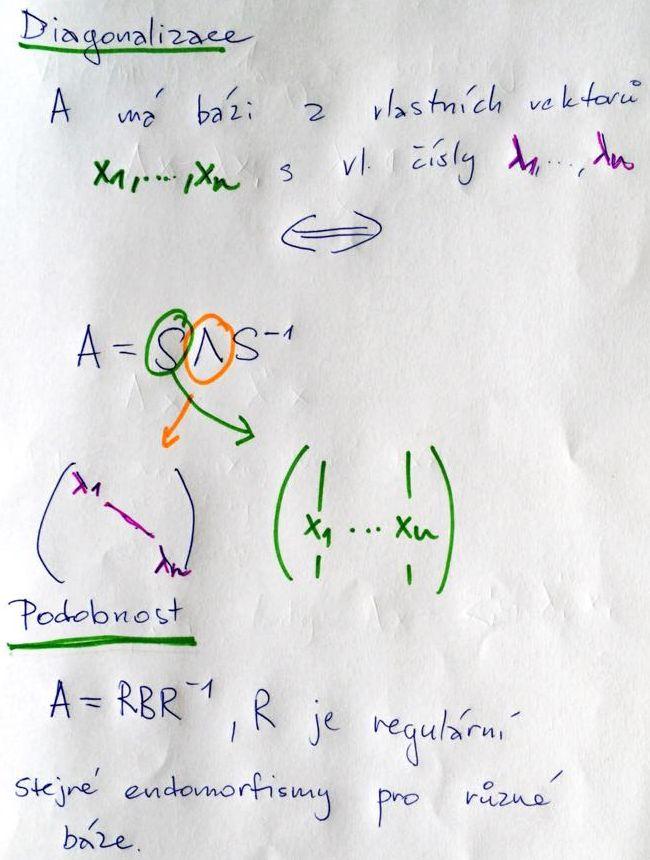 Diagonalizace
A má bázi z vlastních vektorů
x₁,...,xₙ s vl. čísly λ₁,...,λₙ
⟺
A = SΛS⁻¹
λ₁
λₙ
x₁ ... xₙ
Podobnost
A = RBR⁻¹, R je regulární
stejné endomorfismy pro různé
báze.